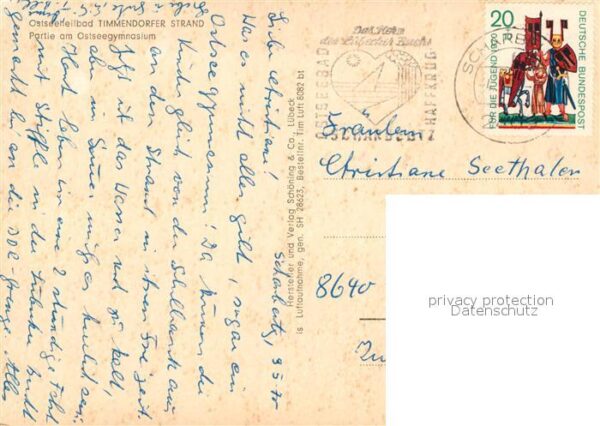 Ostseeheilbad TIMMENDORFER STRAND
Partie am Ostseegymnasium
Scharbeutz, 9.5.70
Liebe Christiane!
Was es nicht alles gibt, sogar ein
Ostseegymnasium! Da können die
Kinder gleich von der Schulbank aus
an den Strand in ihrer Freizeit.
Jetzt ist das Wasser noch zu kalt,
aber im Sommer muß es herrlich sein.
Heut haben wir eine 2 stündige Fahrt
mit Schiff in der Lübecker Bucht
gemacht bis an die DDR-Grenze. Alles
Hersteller und Verlag Schöning & Co., Lübeck
is Luftaufnahme, gen. SH 28623, Bestellnr. Tim Luft 8082 bt
Das Herz
der Lübecker Bucht
OSTSEEBAD
SCHARBEUTZ
HAFFKRUG
SCHARBEUTZ
20
FÜR DIE JUGEND 1970
DEUTSCHE BUNDESPOST
Fräulein
Christiane Seethaler
8640
privacy protection
Datenschutz